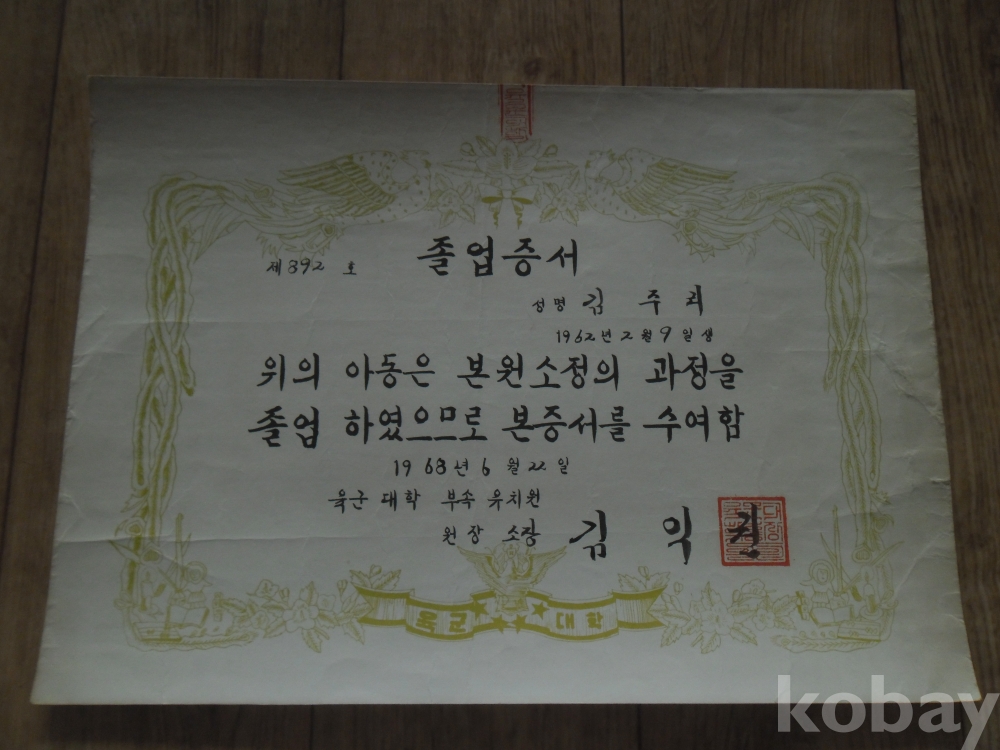 졸업증서
제392 호
성명 김 주 리
1962년 2월 9일생
위의 아동은 본원소정의 과정을
졸업 하였으므로 본증서를 수여함
1968년 6월 22일
육군 대학 부속 유치원
원장 소장 김 익 권
육군 대학
kobay